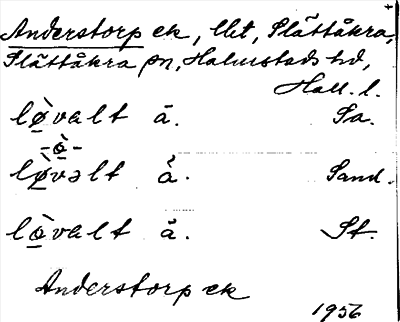 Anderstorp ek, llet, Slättåkra,
Slättåkra sn, Halmstads hd,
Hall. l.
lò̱valt å. Sa.
-ò̱-
lò̱vəlt å̀. Sand.
lò̱valt å. St.
Anderstorp ek
1956